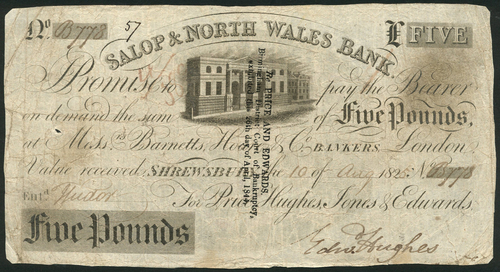 No. B778 57 £ FIVE
SALOP & NORTH WALES BANK
I Promise to pay the Bearer
on demand the sum of Five Pounds,
at Messrs. Barnetts, Hoare & Co. BANKERS London
Value received, SHREWSBURY, the 10 of Aug 1825 No B778
Entd. Tudor For Price, Hughes, Jones & Edwards.
Five Pounds
Edwd. Hughes
Re PRICE AND EDWARDS
Birmingham District Court of Bankruptcy,
exhibited the 26th day of April, 1844.